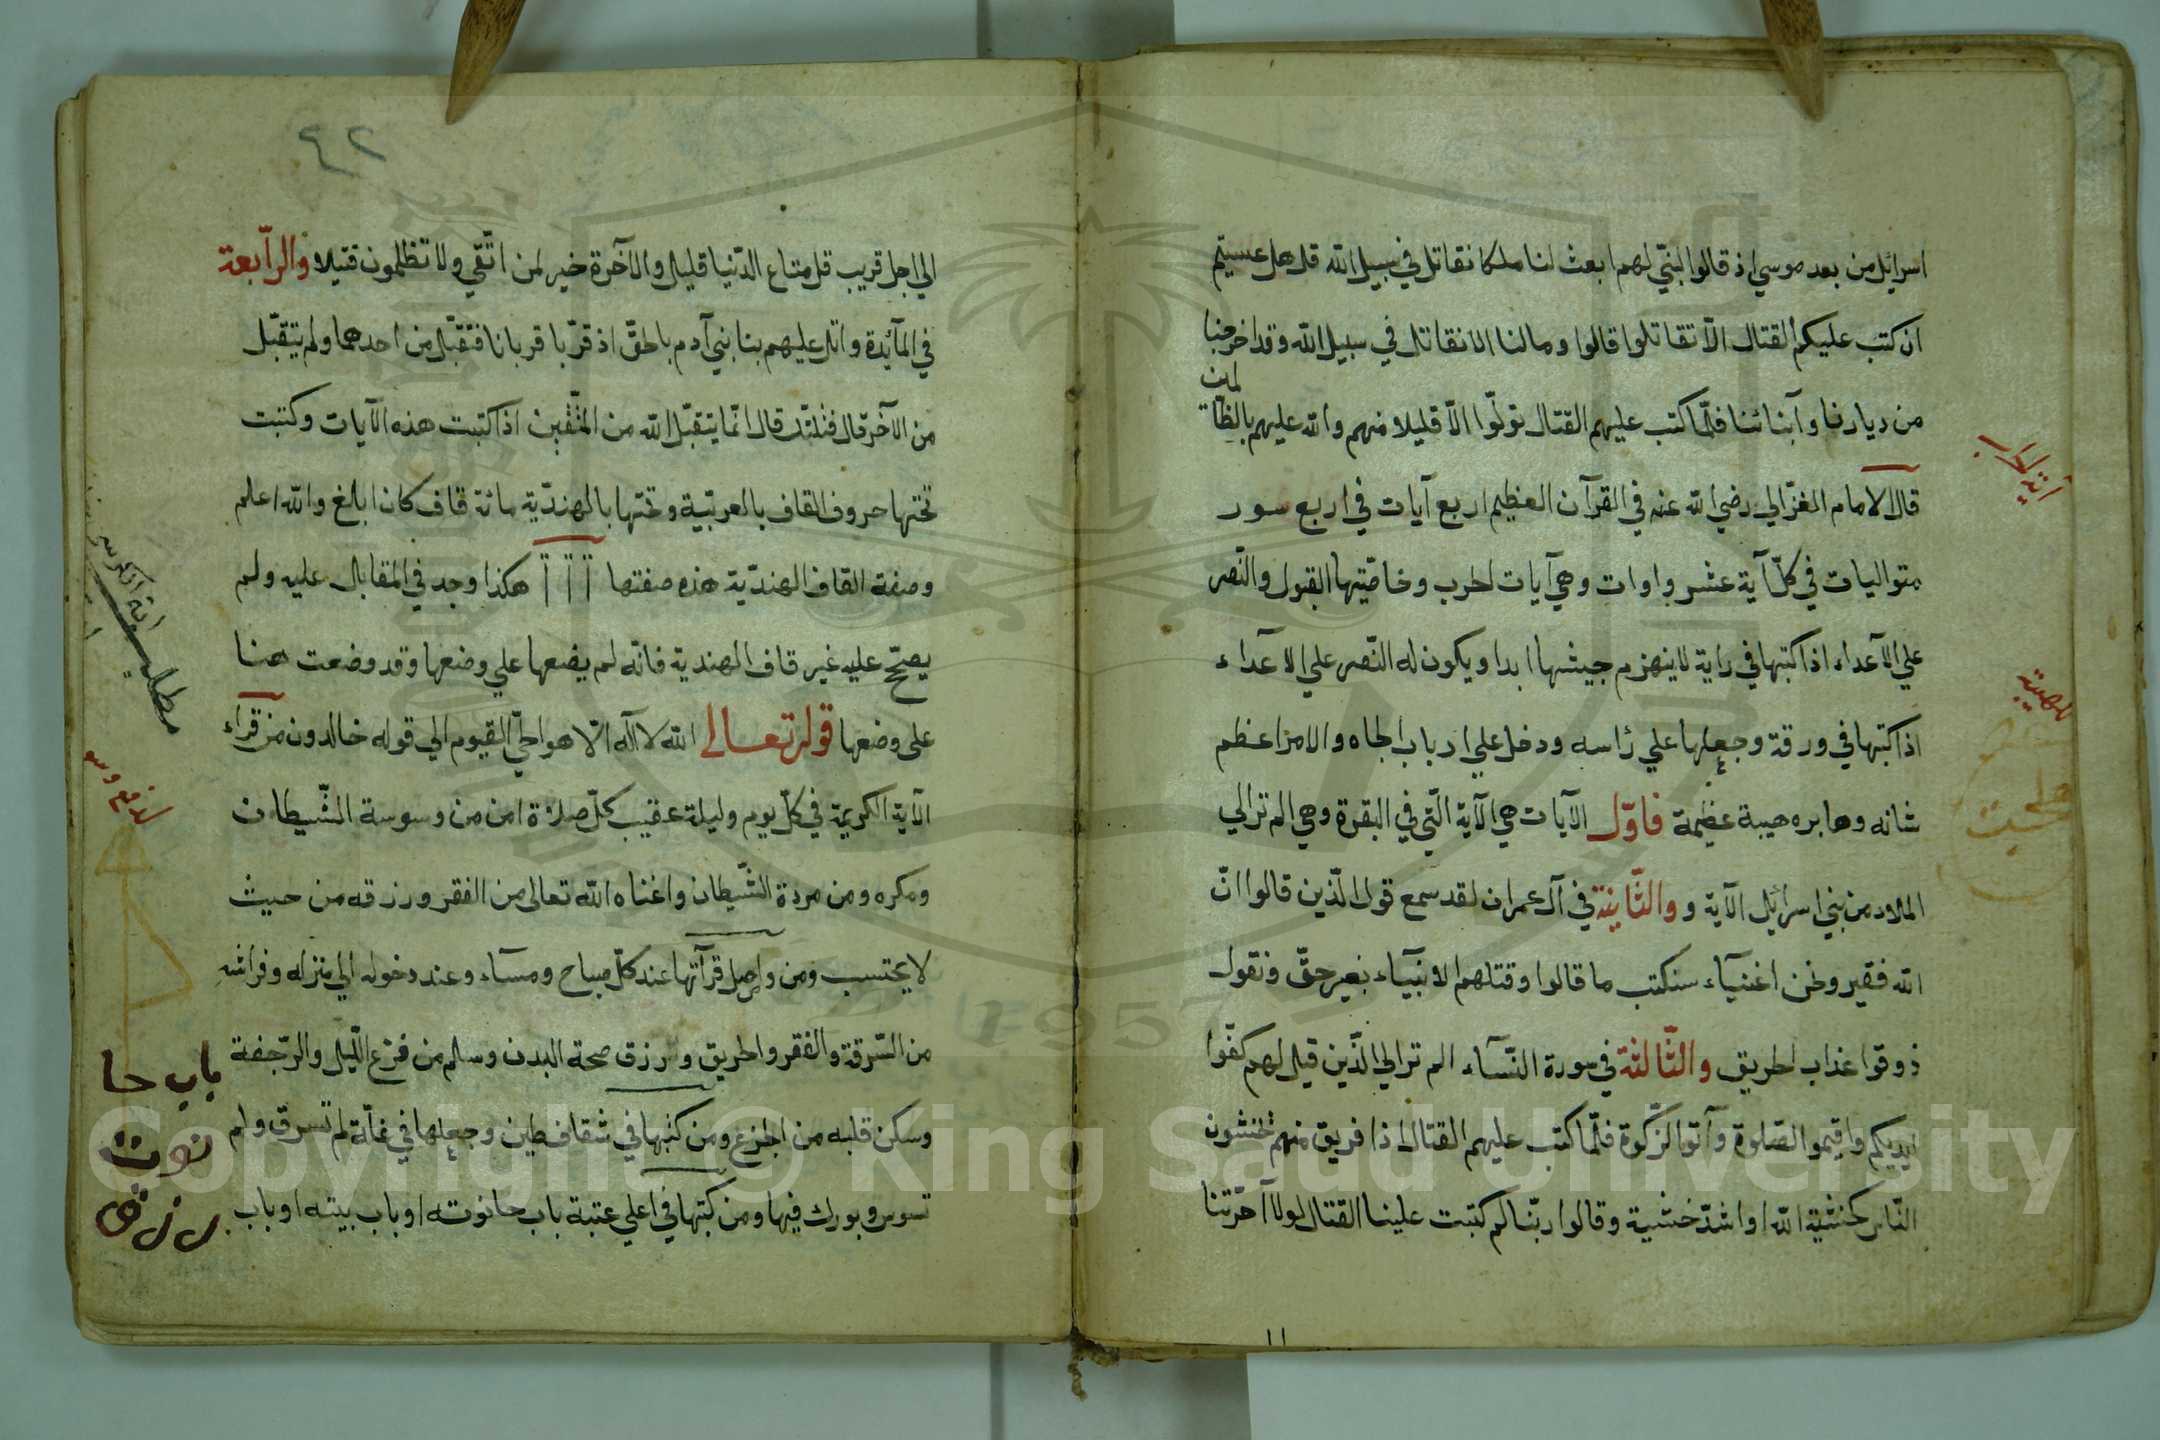 اسرايل من بعد موسي اذ قالوا لنبيّ لهم ابعث لنا ملكا نقاتل في سبيل الله قل هل عسيتم
ان كتب عليكم القتال الاّ تقاتلوا قالوا ومالنا الا نقاتل في سبيل الله وقد اخرجنا
من ديارنا وآبنائنا فلمّا كتب عليهم القتال تولّوا الاّ قليلا منهم والله عليهم بالظّا
لمين
قال الامام الغزّالي رضي الله عنه في القرآن العظيم اربع آيات في اربع سور
متواليات في كلّ آية عشر واوات وهي آيات الحرب وخاصّيتها القبول والنّصر
علي الآعداء اذا كتبها في راية لا ينهزم جيشها ابدا ويكون له النّصر علي الآعداء
اذا كتبها في ورقة وجعلها علي رأسه ودخل علي ارباب الجاه والامرا عظم
شانه وهابره هيبة عظيمة فاوّل الآيات هي الآية الّتي في البقرة وهي الم تر الي
الملاء من بني اسرائيل الآية و والثّانية في آل عمران لقد سمع قول الّذين قالوا انّ
الله فقير ونحن اغنيآء سنكتب ما قالوا وقتلهم الانبيآء بغير حقّ ونقول
ذوقوا عذاب الحريق والثّالثة في سورة النّسآء الم تر الي الّذين قيل لهم كفّوا
ايديكم واقيموا الصّلوة وآتوا الزّكوة فلمّا كتب عليهم القتال اذا فريق منهم يخشون
النّاس كخشية الله او اشدّ خشية وقالوا ربّنا لم كتبت علينا القتال لولا آخّرتنا
آية الحرب
للهيبة
٤٢
الي اجل قريب قل متاع الدّنيا قليل والآخرة خير لمن اتّقي ولا تظلمون فتيلا والرّابعة
في المآئدة واتل عليهم بنا بني آدم بالحقّ اذ قرّبا قربانا فتقبّل من احدهما ولم يتقبّل
من الآخر قال لاقتلنّك قال انّما يتقبّل الله من المتّقين اذا كتبت هذه الآيات وكتبت
تحتها حروف القاف بالعربيّة وتحتها بالهنديّة مائة قاف كان ابلغ والله اعلم
وصفة القاف الهنديّة هذه صفتها هكذا وجد في المقابل عليه ولم
يصحّ عليه غير قاف الهندية فانّه لم يضعها علي وضعها وقد وضعت هنا
علي وضعها قوله تعالى الله لا آله الاّ هو الحيّ القيوم الي قوله خالدون من قراء
الآية الكريمة في كلّ يوم وليلة عقيب كلّ صلاة امن من وسوسة الشّيطان
ومكره ومن مردة الشّيطان واغناه الله تعالى من الفقر ورزقه من حيث
لا يحتسب ومن واصل قرآتها عند كلّ صباح ومسآء وعند دخوله الي منزله وفراشه
من السّرقة والفقر والحريق ورزق صحة البدن وسلم من فزع اللّيل والرّجفة
وسكن قلبه من الجزع ومن كتبها في شقاف طين وجعلها في غلّة لم تسرق ولم
تسوس وبورك فيها ومن كتبها في اعلي عتبة باب حانوته او باب بيته او باب
مطلب آية الكرسي
باب حا
نوت
رزق